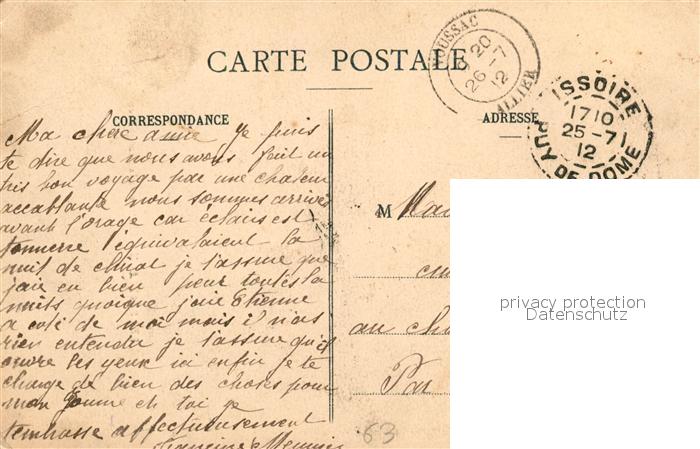 CARTE POSTALE
CORRESPONDANCE
ADRESSE
OUSSAC
20
26 - 7
12
ALLIER
ISSOIRE
1710
25-71
12
PUY DE DOME
Ma chère amie je puis
te dire que nous avons fait un
très bon voyage par une chaleur
accablante nous sommes arrivés
avant l'orage car éclairs est
tonnerre équivalaient la
nuit de je t'assure que
j'aie eu bien peur toute la
nuits quoique j'aie Etienne
a coté de moi mais il n'as
rien entendu je t'assure qu'il
ouvre les yeux ici enfin je te
charge de bien des choses pour
mon et toi je
t'embrasse affectueusement
M
au
Par
63
privacy protection
Datenschutz